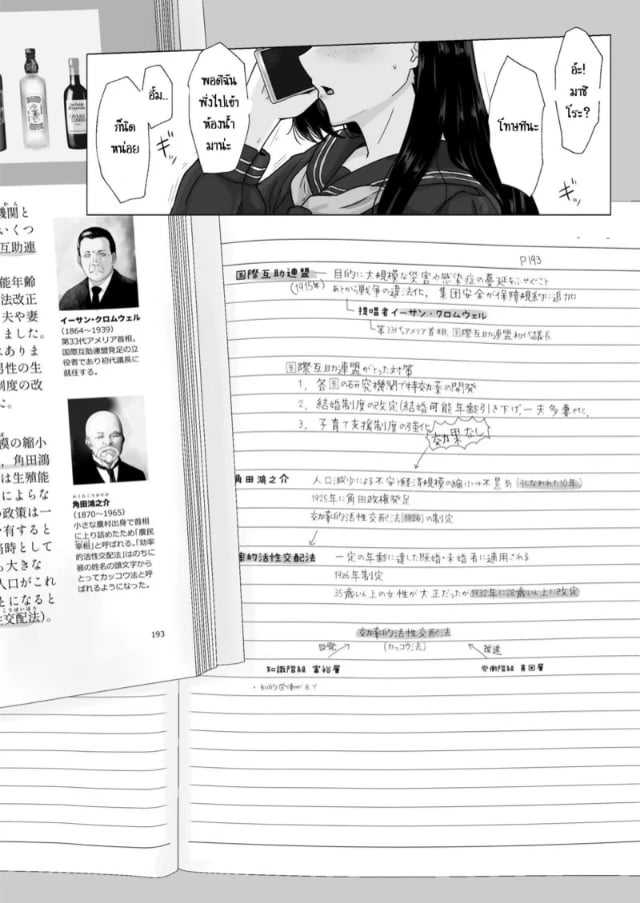 อ๊ะ!
มาซิ
โระ?
โทษทีนะ
พอดีฉัน
พึ่งไปเข้า
ห้องน้ำ
มาน่ะ
อื้ม..
ก็นิด
หน่อย
機関と
いくつ
互助連
能年齢
法改正
夫や妻
ました。
はありま
男性の生
制度の改
た。
イーサン・クロムウェル
(1864～1939)
第33代アメリア首相。
国際互助連盟発足の立
役者であり初代議長に
就任する。
模の縮小
、角田鴻
は生殖能
によらな
の政策は一
を有すると
当時として
も大きな
人口がこれ
とになると
性交配法)。
角田鴻之介
(1870～1965)
小さな農村出身で首相
に上り詰めたため「農民
宰相」と呼ばれる。「効率
的活性交配法」はのちに
彼の姓名の頭文字から
とってカッコウ法と呼
ばれるようになった。
193
P193
国際互助連盟 目的に大規模な災害や感染症の蔓延をふせぐこと
(1915年) あとから戦争の違法化、集団安全が保障規約に追加
提唱者イーサン・クロムウェル
第33代アメリア首相、国際互助連盟初代議長
国際互助連盟がとった対策
1. 各国の研究機関で特効薬の開発
2. 結婚制度の改定(結婚可能年齢引き下げ、一夫多妻etc.
3. 子育て支援制度の強化
効果なし
角田鴻之介 人口減少による不安と経済規模の縮小→不景気(うしなわれた10年)
1925年に角田政権発足
効率的活性交配法(1926)の制定
率的活性交配法 一定の年齢に達した既婚・未婚者に適用される
1926年制定
35歳以上の女性が大正だったが1932年に28歳以上に改定
効率的活性交配法
(カッコウ法)
反発 推進
知識階級 富裕層 労働階級 貧困層